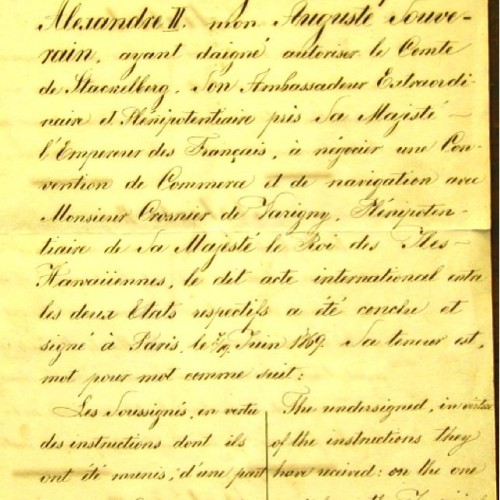 Alexandre II. mon Auguste Souve-
rain, ayant daigné autoriser le Comte
de Stackelberg, Son Ambassadeur Extraordi-
naire et Plénipotentiaire près Sa Majesté
l'Empereur des Français, à négocier une Con-
vention de Commerce et de navigation avec
Monsieur Crosnier de Varigny, Plénipoten-
tiaire de Sa Majesté le Roi des Iles-
Hawaiiennes, le dit acte international entre
les deux Etats respectifs a été conclu et
signé à Paris, le 7/19 Juin 1869. Sa teneur est,
mot pour mot comme suit:
Les Soussignés, en vertu
des instructions dont ils
ont été munis, d'une part
The undersigned, in virtue
of the instructions they
have received: on the one